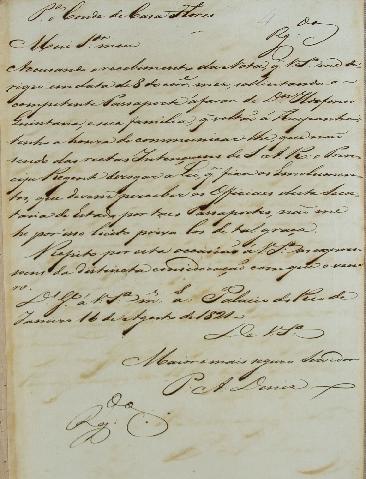 Pª o Conde de Casa Flores
Rg.da
Meu Sr. meu
Accusando o recebimento da Nota, q̃ V. Sª me di-
rigio em data de 8 do corr.e mez, sollicitando o
competente Passaporte a favor de Dom
Quintana, e sua familia, q̃ voltão á Hespanha
tenho a honra de communicar-lhe, que não
sendo das rectas Intençoens de S. A. R. o Prin-
cipe Regente derogar a Lei, q̃ fixa os Emolumen-
tos, que devem perceber os Officiaes desta Secre-
taria de Estado, por taes Passaportes, não me
he por isso licito priva-los de tal graça.
Repito por esta occasião a V. Sª as expres-
soens da distincta consideração com que o vene-
ro.
Ds. Ge. a V. Sª m.s a.s Palacio do Rio de
Janeiro 16 de Agosto de 1821.
De V. Sª
Maior e mais seguro Servidor
P. A. Diniz
Rg.da